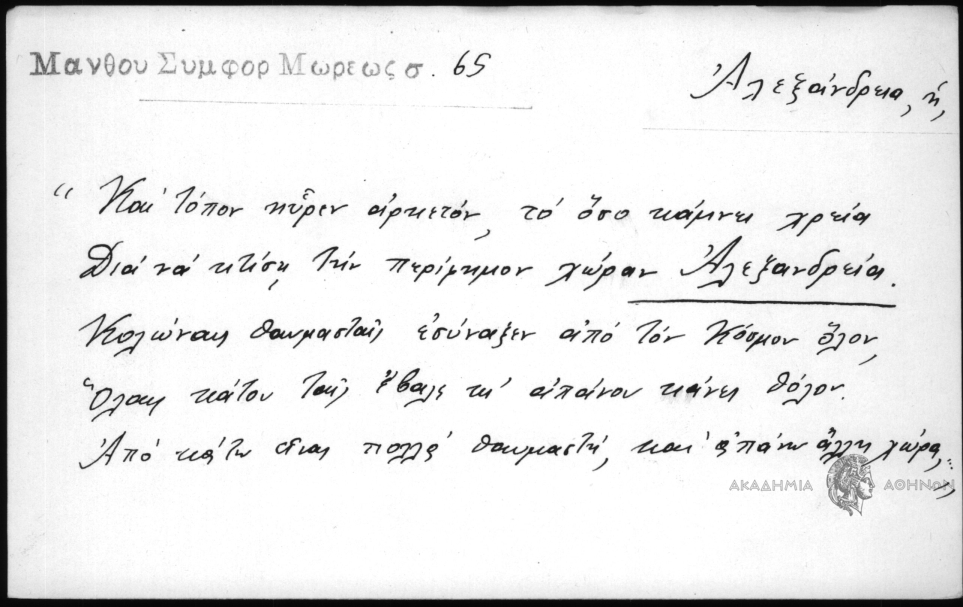 Μανθου Συμφορ Μωρεως σ. 65
Ἀλεξάνδρεια, ἡ,
“ Καὶ τόπον ηὗρεν ἀρκετόν, τὸ ὅσο κάμνει χρεία
Διὰ νὰ κτίσῃ τὴν περίφημον χώραν Ἀλεξανδρεία.
Κολώναις θαυμασταῖς ἐσύναξεν ἀπὸ τὸν κόσμον ὅλον,
Ὅλαις κάτου ταῖς ἔβαλε κι' ἀπάνου κάνει θόλον.
Ἀπὸ κάτω εἶναι πολλὰ θαυμαστή, καὶ ἀπάνω ἄλλη χώρα,"
ΑΚΑΔΗΜΙΑ ΑΘΗΝΩΝ